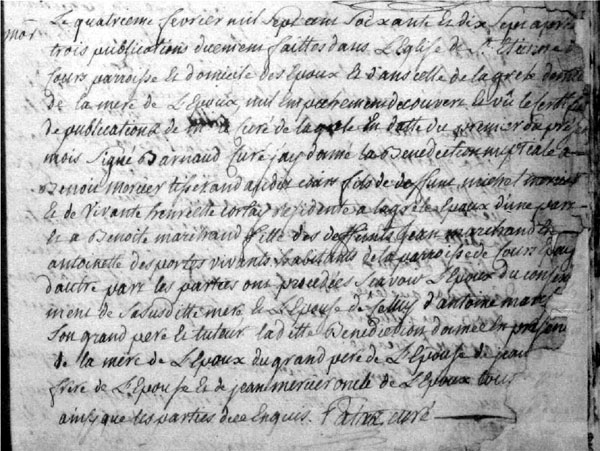 mar
Le quatreme fevrier mil Sept cent Soixante et dix Sept apres
trois publications duement faittes dans L'Eglise de St Etienne de
Cours parroisse et domicile des Epoux et dans celle de la grele
de la mere de L'Epoux, nul Empechement decouvert vû le
de publications de mr le Curé de la grele En datte du premier du
mois Signé Barnaud Curé jay donné la Benediction nuptiale a
Benoit mercier tisserand fils de deffunt michel
et de Vivante henriette residente a la grele Epoux d'une part
Et a Benoite marchand fille des deffunts jean marchand Et
antoinette des portes vivants habitants de la parroisse de Cours
d'autre part les parties ont procedées Scavoir L'Epoux du consen
ment de Sa Susditte mere Et L'Epouse de Celluy d'antoine
Son grand pere et tuteur laditte Benediction donnée En
de la mere de L'Epoux du grand pere de L'Epouse de jean
frere de L'Epouse Et de jean mercier oncle de L'Epoux tous
ainsy que les parties Enquis. curé